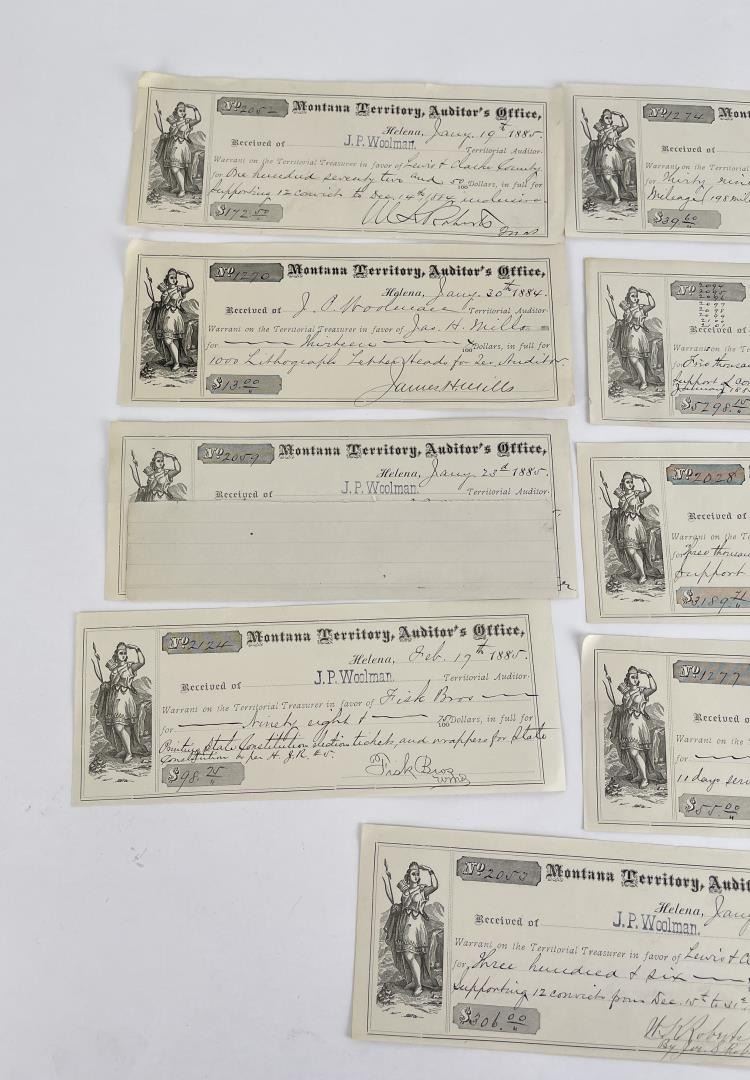 No 2052 Montana Territory, Auditor's Office,
Helena, Jany. 19th 1885.
Received of J. P. Woolman. Territorial Auditor
Warrant on the Territorial Treasurer in favor of Lewis & Clarke County
for One hundred seventy two and 50/100 Dollars, in full for
supporting 12 convicts to Dec. 14th 1884 inclusive.
$172.50 W. K. Roberts
No 1270 Montana Territory, Auditor's Office,
Helena, Jany. 30th 1884.
Received of J. P. Woolman Territorial Auditor
Warrant on the Territorial Treasurer in favor of Jas. H. Mills
for Thirteen /100 Dollars, in full for
1000 Lithograph Letter Heads for Auditor.
$13.00 James H. Mills
No 2059 Montana Territory, Auditor's Office,
Helena, Jany. 23d 1885.
Received of J. P. Woolman. Territorial Auditor
No 2124 Montana Territory, Auditor's Office,
Helena, Feb. 17th 1885.
Received of J. P. Woolman. Territorial Auditor
Warrant on the Territorial Treasurer in favor of Fisk Bros
for Ninety eight & 25/100 Dollars, in full for
Printing State Constitution election tickets, and wrappers for State
Constitution as per H. J. R. #5.
$98.25 Fisk Bros
No 1274 Mont
Received of
Warrant on the Territorial
for Thirty nin
Mileage (198 mil
$39.60
2094
2095
2096
2097
2098
2099
2100
2101
Received of
Warrant on the Ter
for Five thousan
support of con
January 188
$5298.15
No 2028
Received of
Warrant on the Te
for Three thousan
support
$3189.71
No 1277
Received o
Warrant on the T
for
11 days serv
$55.00
No 2053 Montana Territory, Audit
Helena, Jany
Received of J. P. Woolman.
Warrant on the Territorial Treasurer in favor of Lewis & C
for Three hundred & six
supporting 12 convicts from Dec. 15th to 31st
$306.00 W. K. Roberts
By Jos. S.